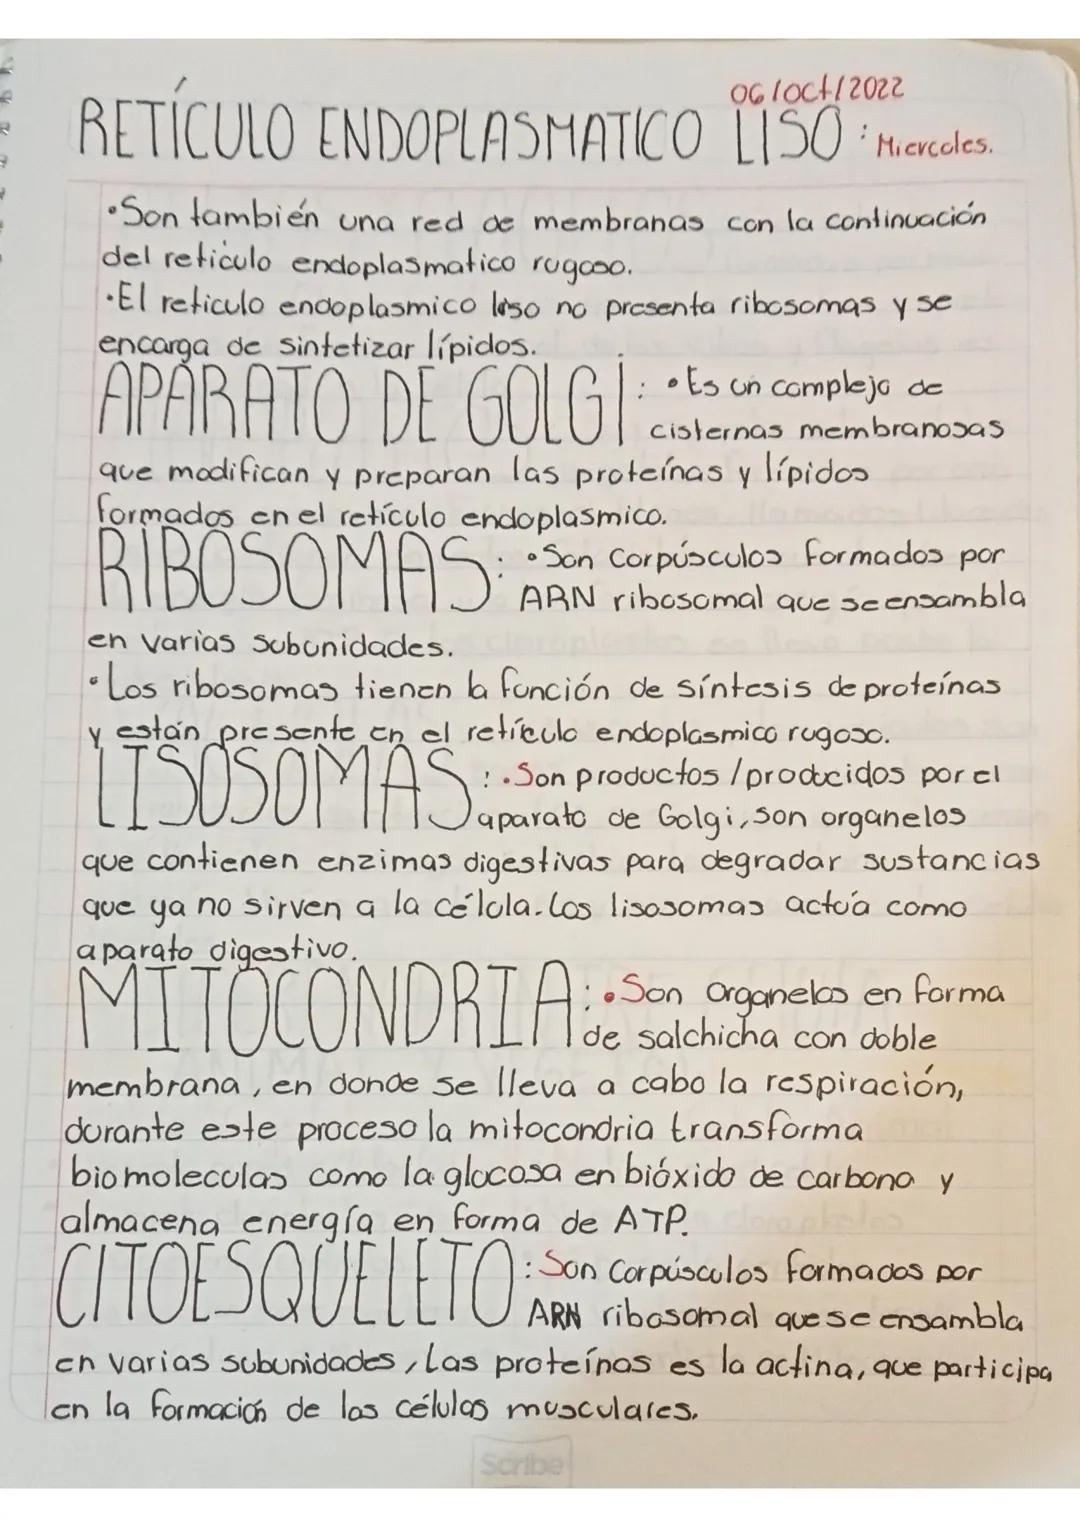 06/Oct/2022
RETÍCULO ENDOPLASMATICO LISO: Miercoles.
•Son también una red de membranas con la continuación
del retículo endoplasmatico rugoso.
•El reticulo endoplasmico liso no presenta ribosomas y se
encarga de sintetizar lípidos.
APARATO DE GOLGI: •Es un complejo de
cisternas membranosas
que modifican y preparan las proteínas y lípidos
formados en el retículo endoplasmico.
RIBOSOMAS: •Son Corpúsculos formados por
ARN ribosomal que se ensambla
en varias subunidades.
•Los ribosomas tienen la función de síntesis de proteínas
y están presente en el retículo endoplasmico rugoso.
LISOSOMAS: •Son productos/producidos por el
aparato de Golgi, son organelos
que contienen enzimas digestivas para degradar sustancias
que ya no sirven a la célula. Los lisosomas actúa como
aparato digestivo.
MITOCONDRIA: •Son organelos en forma
de salchicha con doble
membrana, en donde se lleva a cabo la respiración,
durante este proceso la mitocondria transforma
biomoleculas como la glucosa en bióxido de carbono y
almacena energía en forma de ATP.
CITOESQUELETO: Son Corpúsculos formados por
ARN ribosomal que se ensambla
en varias subunidades, Las proteínas es la actina, que participa
en la formación de las células musculares.
Scribe